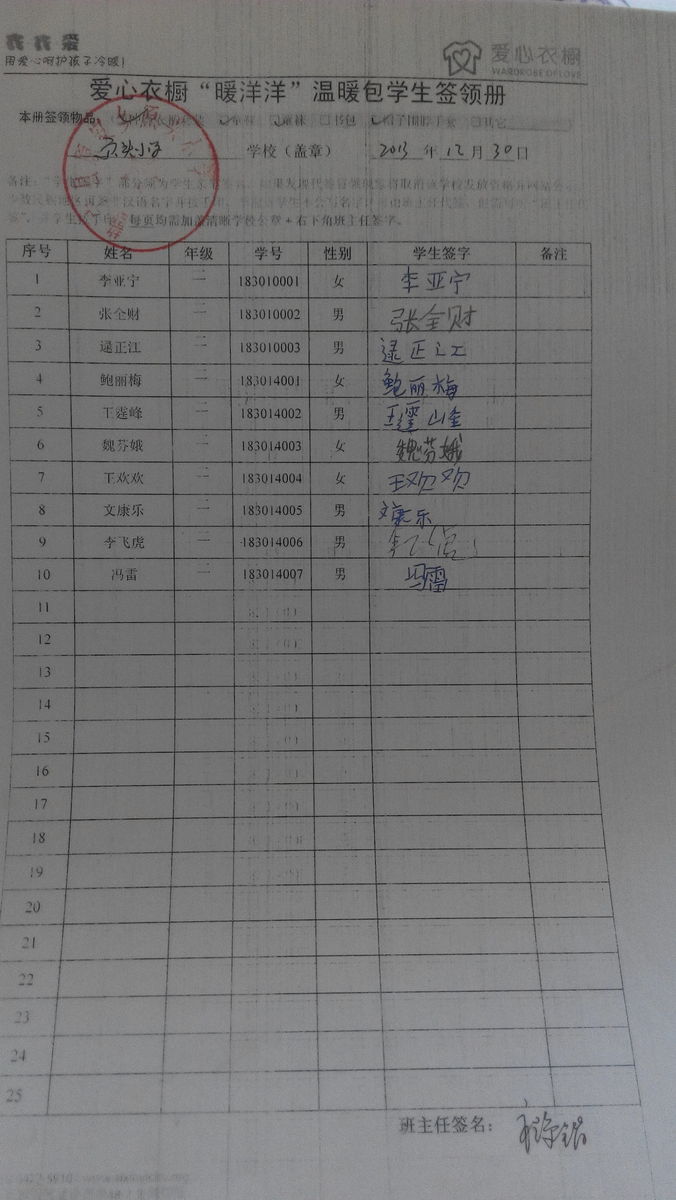 用爱心呵护孩子冷暖!
爱心衣橱
WARDROBE OF LOVE
爱心衣橱“暖洋洋”温暖包学生签领册
本册签领物品 童鞋 童袜 书包 帽子围脖手套 其它
学校（盖章） 2013 年 12 月 30 日
每页均需加盖清晰学校公章+右下角班主任签字。
序号 姓名 年级 学号 性别 学生签字 备注
1 李亚宁 二 183010001 女 李亚宁
2 张全财 二 183010002 男 张全财
3 逯正江 二 183010003 男 逯正江
4 鲍丽梅 二 183014001 女 鲍丽梅
5 王霆峰 二 183014002 男
6 魏芬娥 二 183014003 女 魏芬娥
7 王欢欢 二 183014004 女 王欢欢
8 文康乐 二 183014005 男 文康乐
9 李飞虎 二 183014006 男
10 冯雷 二 183014007 男 冯雷
11
12
13
14
15
16
17
18
19
20
21
22
23
24
25
班主任签名：